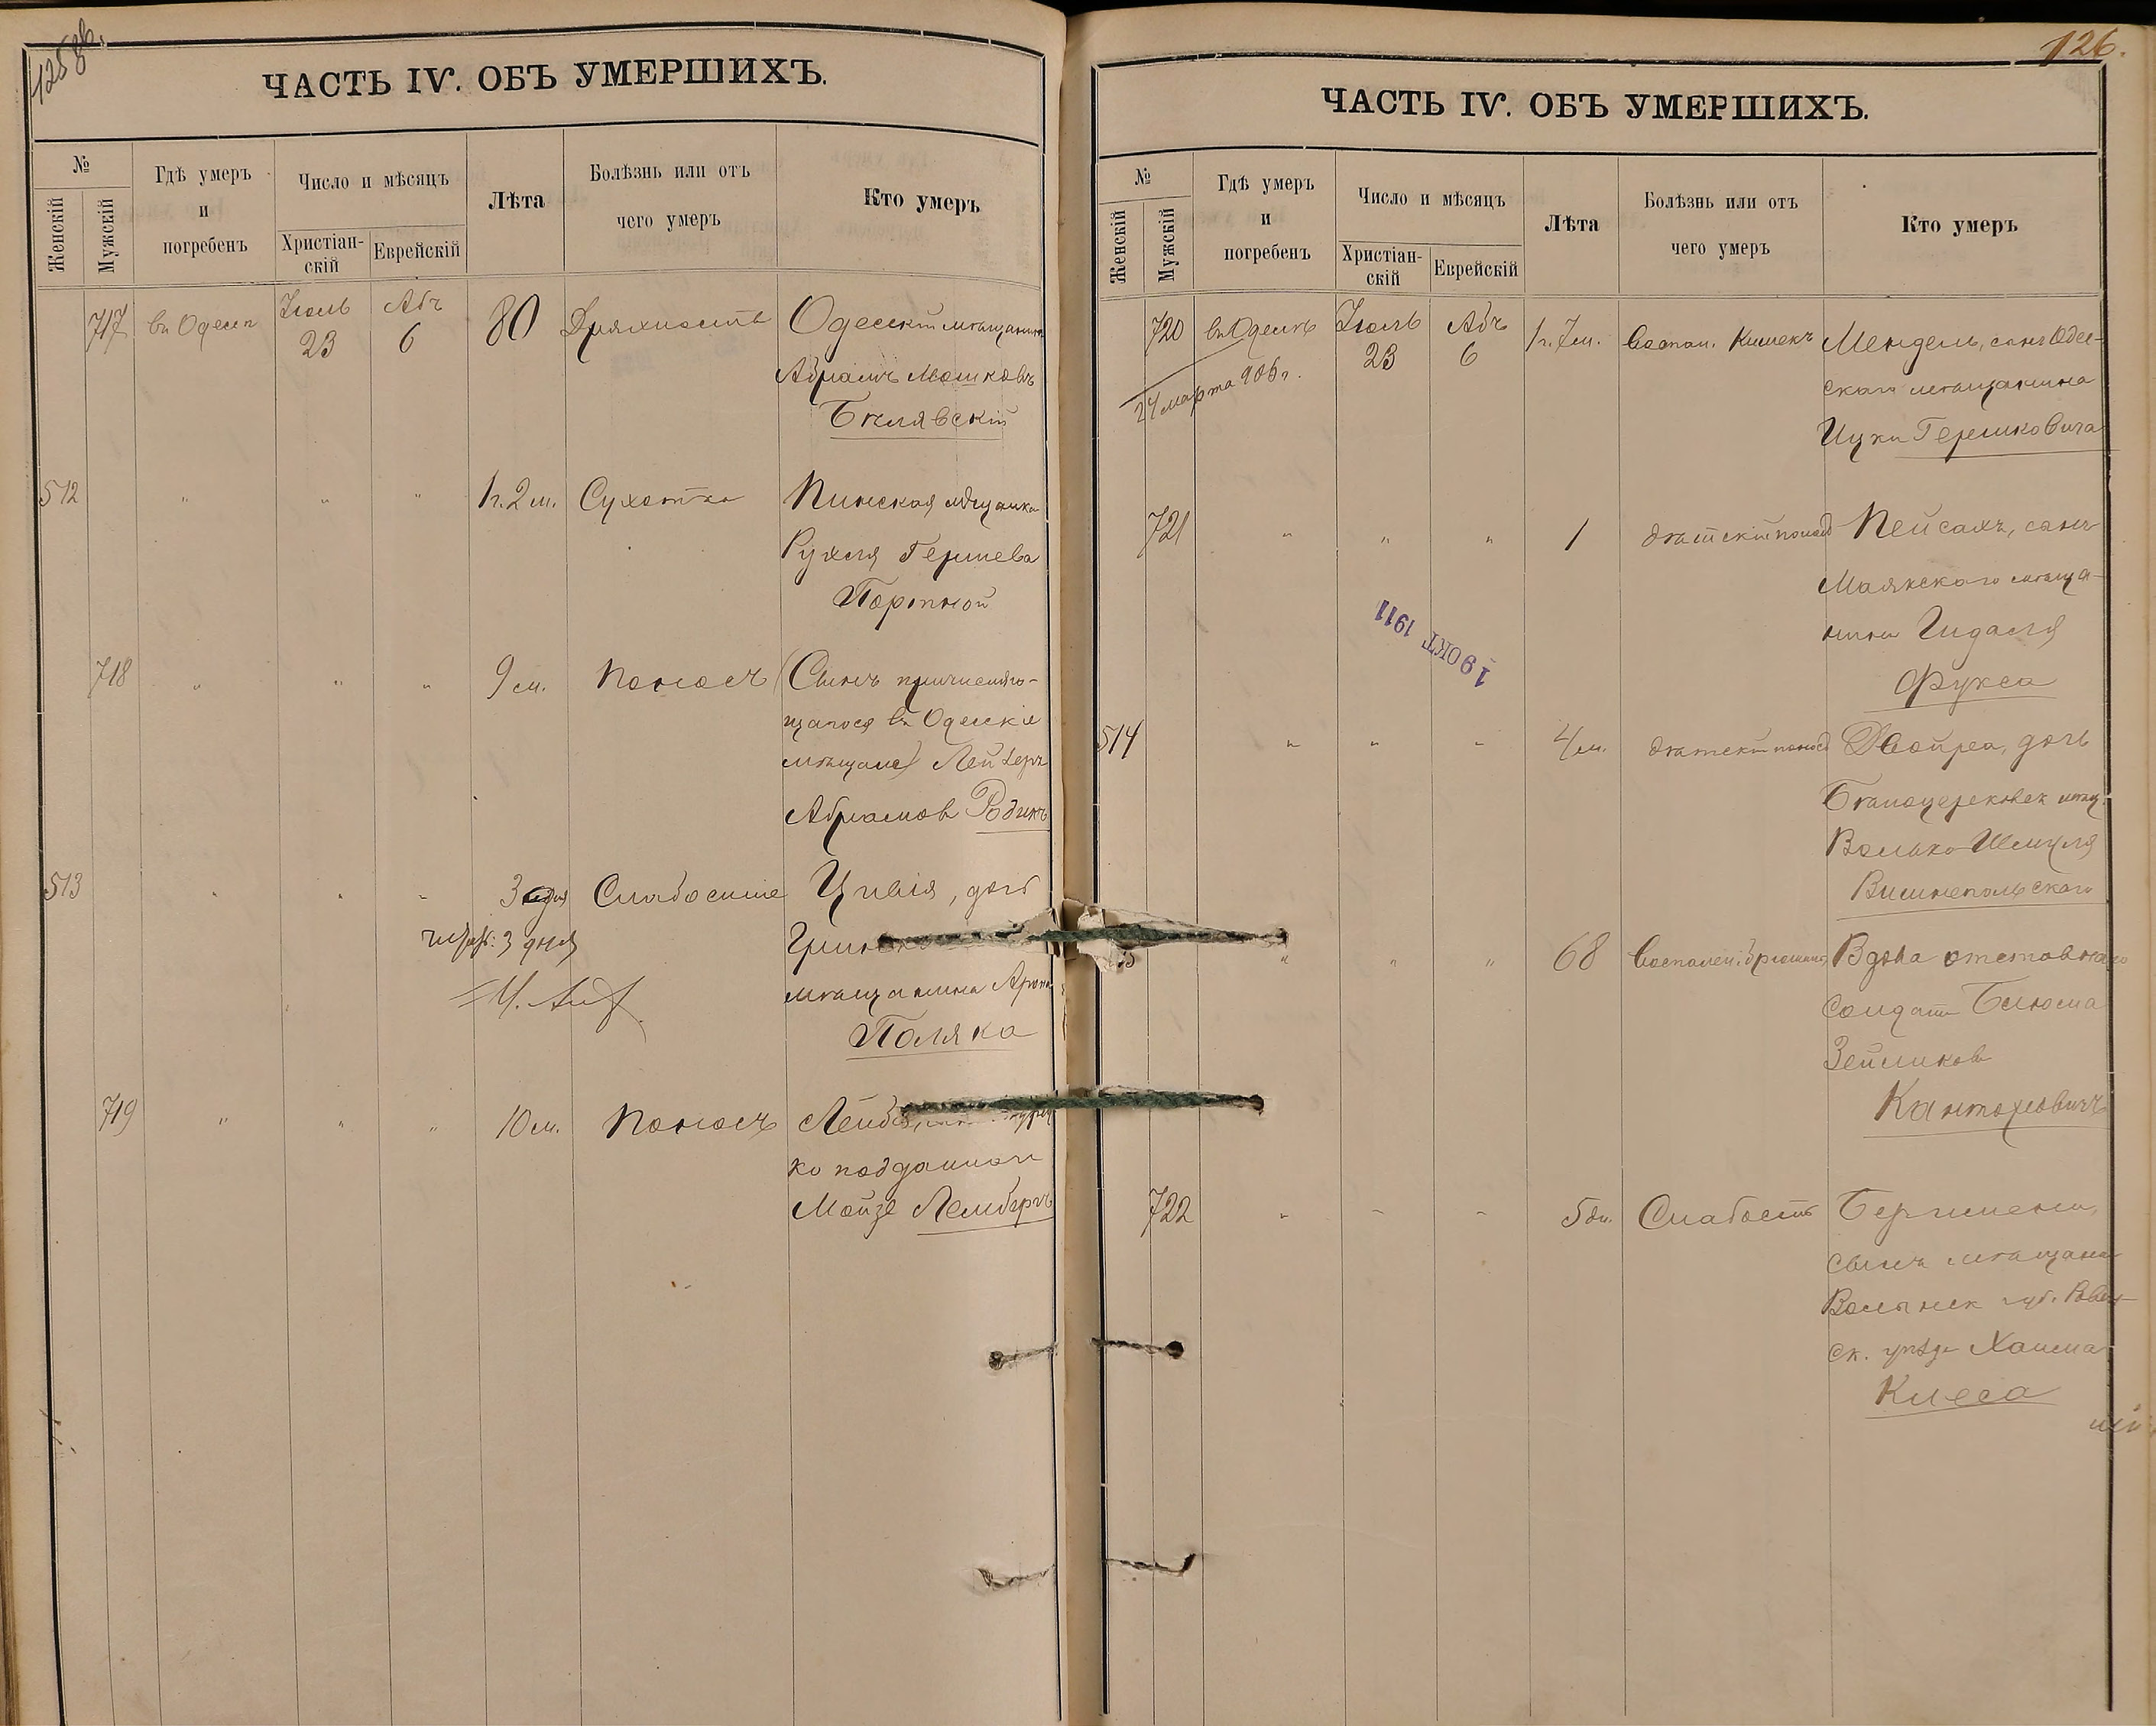 ЧАСТЬ IV. ОБЪ УМЕРШИХЪ.
№
Женскій
Мужскій
Гдѣ умеръ
и
погребенъ
Число и мѣсяцъ
Христіан-
скій
Еврейскій
Лѣта
Болѣзнь или отъ
чего умеръ
Кто умеръ
717 въ Одессѣ Іюль 23 Абъ 6 80 Дряхлость Одесскій мѣщанинъ
Абрамъ Мошковъ
Бѣлявскій
512 " " " 1 г. 2 м. Сухотка Пинская мѣщанка
Рухля Гершева
Портной
718 " " " 9 м. Поносъ (Сынъ причисляю-
щагося въ Одесскіе
мѣщане) Лейзеръ
Абрамов
513 " " " 3 дня Слабосиліе Цивія, дочь
3 дня
мѣщанина Арона
Поляка
719 " " " 10 м. Поносъ Лейба,
ко подданнаго
Мойзе Лембергъ
126.
ЧАСТЬ IV. ОБЪ УМЕРШИХЪ.
№
Женскій
Мужскій
Гдѣ умеръ
и
погребенъ
Число и мѣсяцъ
Христіан-
скій
Еврейскій
Лѣта
Болѣзнь или отъ
чего умеръ
Кто умеръ
720 въ Одессѣ Іюль 23 Абъ 6 1 г. 7 м. Воспал. Кишекъ Мендель, сынъ Одес-
скаго мѣщанина
Ицки Гершковича
24 марта 906 г.
721 " " " 1 дѣтскій поносъ Пейсахъ, сынъ
Маякскаго мѣща-
нина Гидаля
Фукса
19 ОКТ 1911
514 " " " 4 м. дѣтскій поносъ Двойра, дочь
Бѣлоцерковск мѣщ.
Волько Шмуля
Вишнепольскаго
" " " 68 Воспален. брюшины Вдова отставнаго
солдата Блюма
Зейликов
Канторовичъ
722 " " " 5 дн. Слабость
сынъ мѣщанина
Волынск губ. Ровен-
ск. уѣзда Хаима
Клеса